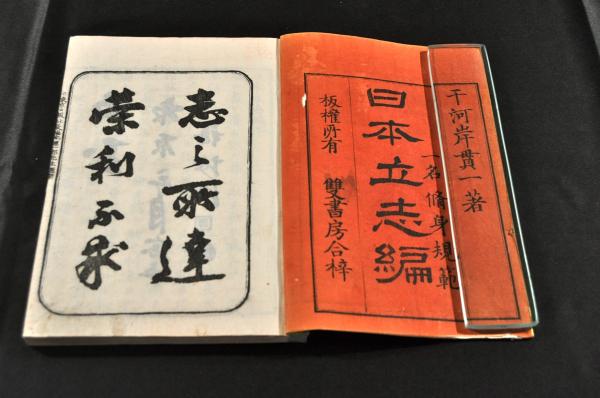 千河岸貫一著
一名脩身規範
日本立志編
板權所有 雙書房合梓
志之所達
榮利不求